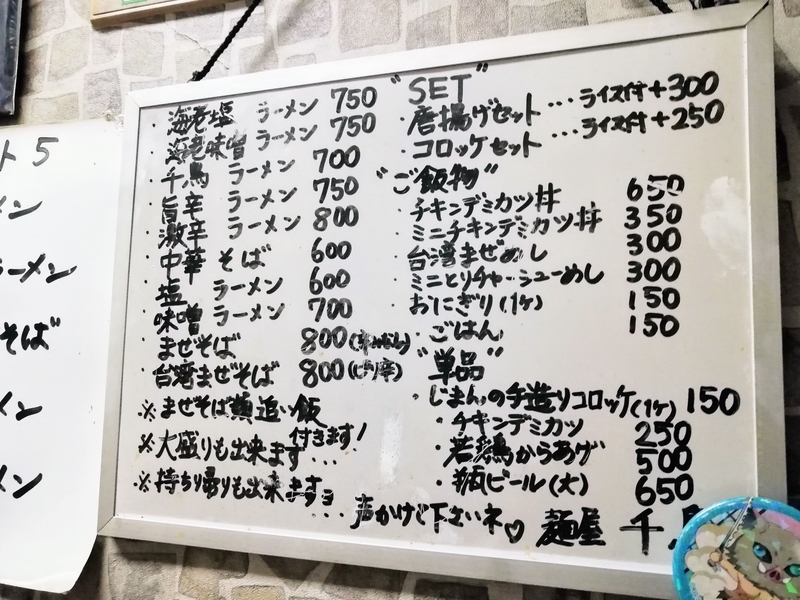 ・海老塩 ラーメン 750
・海老味噌 ラーメン 750
・千鳥 ラーメン 700
・旨辛 ラーメン 750
・激辛 ラーメン 800
・中華 そば 600
・塩 ラーメン 600
・味噌 ラーメン 700
・まぜそば 800
・台湾まぜそば 800(ピリ辛)
※まぜそば類追い飯
付きます!
※大盛りも出来ます…
※持ち帰りも出来ます
… 声かけて下さいネ♡ 麺屋 千
"SET"
・唐揚げセット …ライス付+300
・コロッケセット …ライス付+250
"ご飯物"
・チキンデミカツ丼 650
・ミニチキンデミカツ丼 350
・台湾まぜめし 300
・ミニとりチャーシューめし 300
・おにぎり(1ケ) 150
・ごはん 150
"単品"
・じまんの手造りコロッケ(1ケ) 150
・チキンデミカツ 250
・若鶏からあげ 500
・瓶ビール(大) 650
ト 5
メン
ラーメン
そば
メン
メン